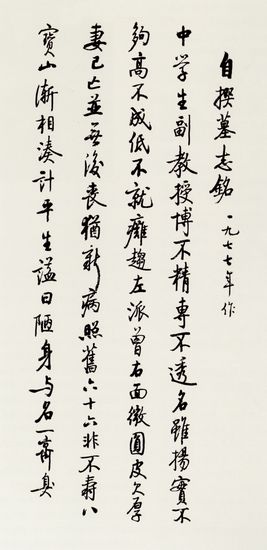 自撰墓志銘 一九七七年作
中学生副教授博不精專不透名雖揚實不
夠高不成低不就癱趨左派曾右面微圓皮欠厚
妻已亡並無後喪猶新病照舊六十六非不壽八
寶山漸相湊計平生謚曰陋身与名一齊臭